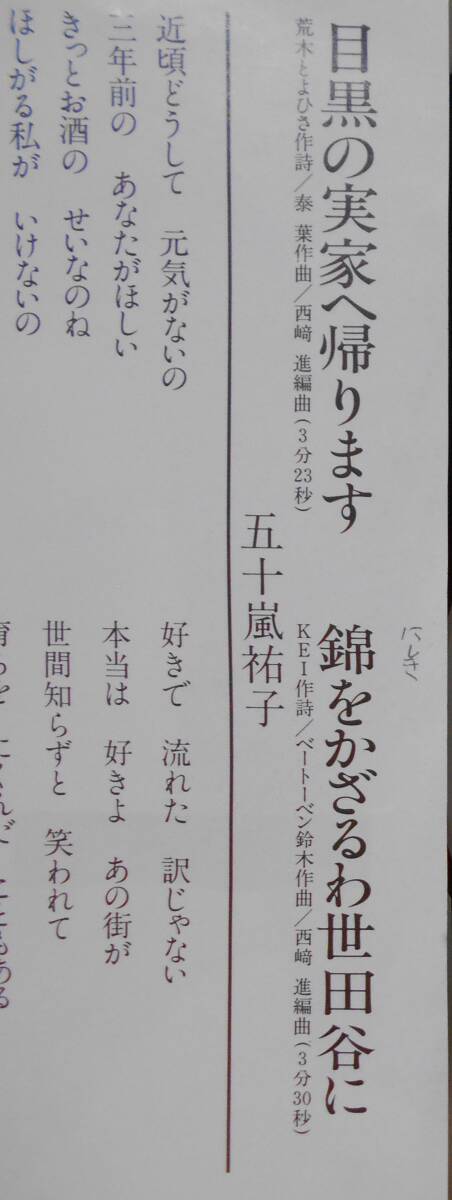 目黒の実家へ帰ります
荒木とよひさ作詩/泰 葉作曲/西﨑 進編曲(3分23秒)
にしき
錦をかざるわ世田谷に
KEI作詩/ベートーベン鈴木作曲/西﨑 進編曲(3分30秒)
五十嵐祐子
近頃どうして 元気がないの
三年前の あなたがほしい
きっとお酒の せいなのね
ほしがる私が いけないの
好きで 流れた 訳じゃない
本当は 好きよ あの街が
世間知らずと 笑われて